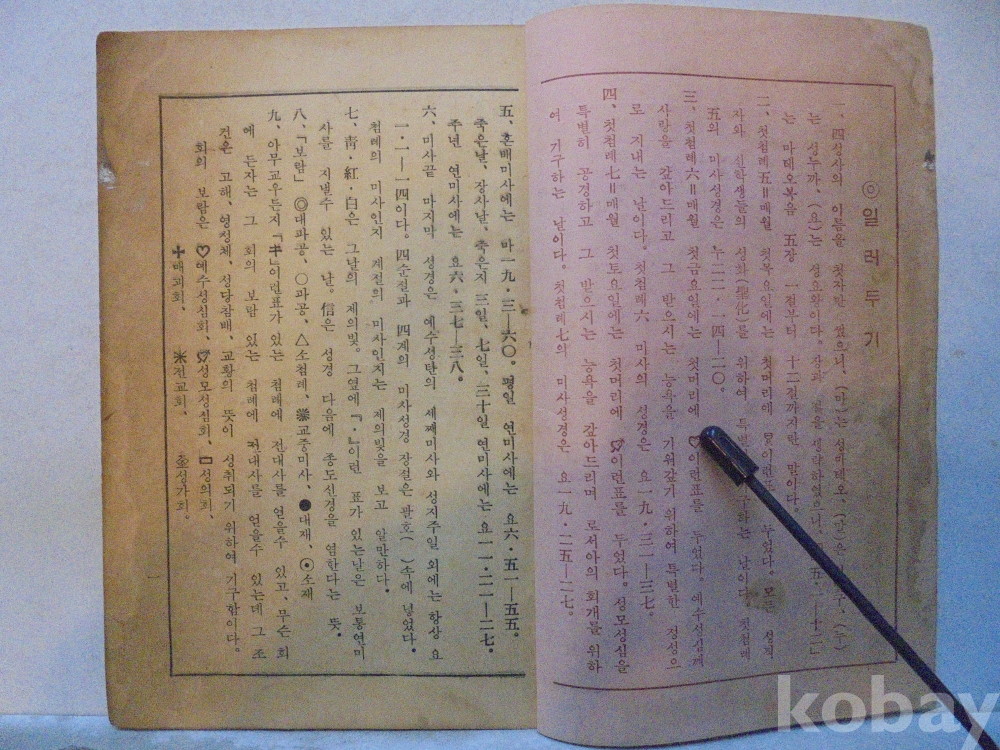 ◎일러두기
一、四성사의 이름을 첫자만 썼으니、(마)는 성마테오、(말)은 (누)
는 성누까、(요)는 성요왕이다。장과 절을 생략하였으니 五·一—十二」
는 마테오복음 五장 一절부터 十二절까지란 말이다。
二、첫첨례五=매월 첫목요일에는 첫머리에 이런표 두었다。모든 성직
자와 신학생들의 성화(聖化)를 위하여 특별 구하는 날이다。첫첨례
五의 미사성경은 누二二·一四—二〇。
三、첫첨례六=매월 첫금요일에는 첫머리에 ♡이런표를 두었다。예수성심께
사랑을 갚아드리고 그 받으시는 능욕을 기워갚기 위하여 특별한 정성으
로 지내는 날이다。첫첨례六 미사의 성경은 요一九·三一—三七。
四、첫첨례七=매월 첫토요일에는 첫머리에 이런표를 두었다。성모성심을
특별히 공경하고 그 받으시는 능욕을 갚아드리며 로서아의 회개를 위하
여 기구하는 날이다。첫첨례七의 미사성경은 요一九·二五—二七。
五、혼배미사에는 마一九·三—六〇。평일 연미사에는 요六·五一—五五。
죽은날、장사날、죽은지 三일、七일、三十일 연미사에는 요一一·二一—二七。
주년 연미사에는 요六·三七—三八。
六、미사끝 마지막 성경은 예수성탄의 세째미사와 성지주일 외에는 항상 요
一·一—一四이다。四순절과 四계의 미사성경 장절은 괄호( )속에 넣었다。
첨례의 미사인지 계절의 미사인지는 제의빛을 보고 알만하다。
七、靑·紅·白은 그날의 제의빛。그옆에『·』이런 표가 있는날은 보통연미
사를 지낼수 있는 날。信은 성경 다음에 종도신경을 염한다는 뜻。
八、「보람」◎대파공、○파공、△소첨례、교중미사、●대재、⊙소재
九、아무교우든지『キ』이런표가 있는 첨례에 전대사를 얻을수 있고、무슨 회
에 든자는 그 회의 보람 있는 첨례에 전대사를 얻을수 있는데 그 조
건은 고해、영성체、성당참배、교황의 뜻이 성취되기 위하여 기구함이다。
회의 보람은 ♡예수성심회、성모성심회、▭성의회、
✚매괴회、 전교회、 성가회、
一
kobay